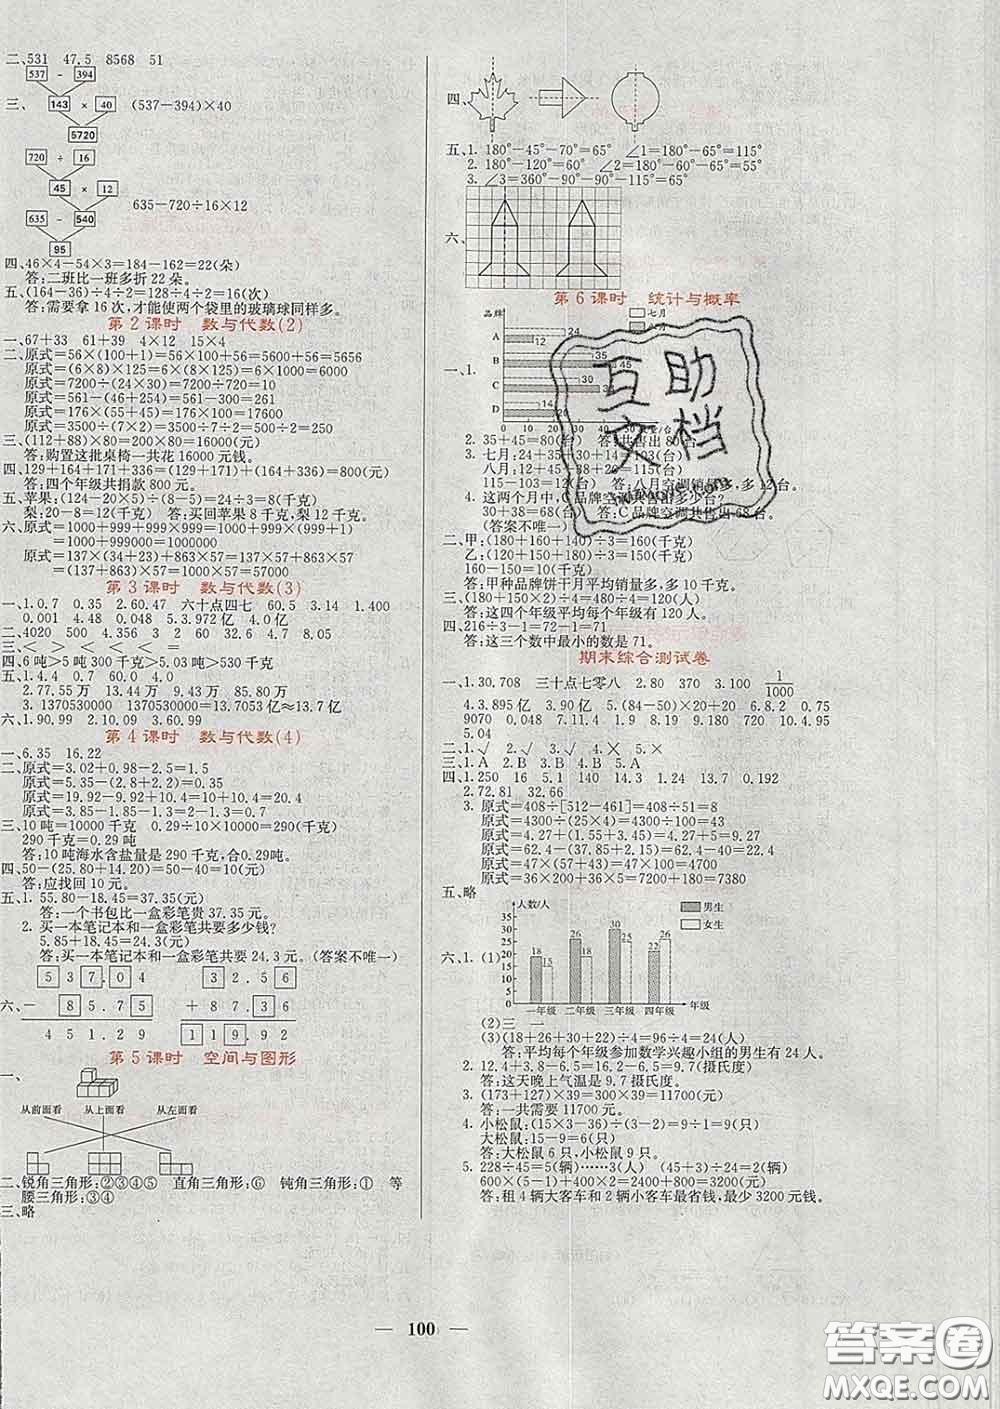 二、531 47.5 8568 51
537 - 394
三、 143 × 40 (537-394)×40
5720
720 ÷ 16
45 × 12
635-720÷16×12
635 - 540
95
四、46×4-54×3=184-162=22(朵)
答:二班比一班多折 22 朵。
五、(164-36)÷4÷2=128÷4÷2=16(次)
答:需要拿 16 次,才能使两个袋里的玻璃球同样多。
第 2 课时 数与代数(2)
一、67+33 61+39 4×12 15×4
二、原式=56×(100+1)=56×100+56=5600+56=5656
原式=(6×8)×125=6×(8×125)=6×1000=6000
原式=7200÷(24×30)=7200÷720=10
原式=561-(46+254)=561-300=261
原式=176×(55+45)=176×100=17600
原式=3500÷(7×2)=3500÷7÷2=500÷2=250
三、(112+88)×80=200×80=16000(元)
答:购置这批桌椅一共花 16000 元钱。
四、129+164+171+336=(129+171)+(164+336)=800(元)
答:四个年级共捐款 800 元。
五、苹果:(124-20×5)÷(8-5)=24÷3=8(千克)
梨:20-8=12(千克) 答:买回苹果 8 千克,梨 12 千克。
六、原式=1000+999+999×999=1000+999×(999+1)
=1000+999000=1000000
原式=137×(34+23)+863×57=137×57+863×57
=(137+863)×57=1000×57=57000
第 3 课时 数与代数(3)
一、1.0.7 0.35 2.60.47 六十点四七 60.5 3.14 1.400
0.001 4.48 0.048 5.3.972亿 4.0亿
二、4020 500 4.356 3 2 60 32.6 4.7 8.05
三、< > < < < = >
四、6 吨>5 吨 300 千克>5.03 吨>530 千克
五、1.4.4 0.7 60.0 4.0
2.77.55 万 20.44 万 19.93 万 17.46 万
3.1370530000 1370530000=13.7053亿≈13.7亿
六、1.90.99 2.10.09 3.60.99
第 4 课时 数与代数(4)
一、6.35 16.22
二、原式=3.02+0.98-2.5=1.5
原式=5.35-(2.84+1.16)=1.35
原式=10.8-9.8+9.92=1+9.92=10.92
原式=3.85-1.85-1.3=2-1.3=0.7
三、10 吨=10000 千克 0.29÷10×10000=290(千克)
290 千克=0.29 吨
答:10 吨海水含盐量是 290 千克,合0.29吨。
四、50-(25.80+14.20)=50-40=10(元)
答:应找回 10 元。
五、1. 55.80-18.45=37.35(元)
答:一个书包比一盒彩笔贵 37.35 元。
2. 买一本笔记本和一盒彩笔共要多少钱?
5.85+18.45=24.3(元)
答:买一本笔记本和一盒彩笔共要 24.3 元。(答案不唯一)
5 3 7.0 4 3 2.5 6
六、- 8 5.7 5 + 8 7.3 6
4 5 1.2 9 1 1 9.9 2
第 5 课时 空间与图形
一、
从前面看 从上面看 从左面看
二、锐角三角形:②③④⑤ 直角三角形:⑥ 钝角三角形:① 等
腰三角形:③④
三、略
四、
五、1. 180°-45°-70°=65° ∠1=180°-65°=115°
2. 180°-120°=60° ∠2=180°-60°-65°=55°
3. ∠3=360°-90°-90°-115°=65°
六、
第 6 课时 统计与概率
品牌 七月
A 24 12
一、1. B 35 45
C 30
D 14 20
0 10 20 30 40
2. 35+45=80(台) 答:共售出 80 台。
3. 七月:24+35+30+14=103(台)
八月:12+45+38+20=115(台)
115-103=12(台) 答:八月空调销量多,多 12 台。
4. 这两个月中,C品牌空调共售出多少台?
30+38=68(台) 答:C品牌空调共售出 68 台。
(答案不唯一)
二、甲:(180+160+140)÷3=160(千克)
乙:(120+180+150)÷3=150(千克)
160-150=10(千克)
答:甲种品牌饼干月平均销量多,多 10 千克。
三、(150+180+150)÷4=480÷4=120(人)
答:这四个年级平均每个年级有 120 人。
四、216÷3-1=72-1=71
答:这三个数中最小的数是 71。
期末综合测试卷
一、1.30.708 三十点七零八 2.80 370 3.100 1/1000
4.3.895亿 3.90亿 5.(84-50)×20+20 6.8.2 0.75
9070 0.048 7.115 9.09 8.60 9.18 10.4.95
5.04
二、1.√ 2.√ 3.√ 4.× 5.×
三、1.A 2.B 3.A 4.B 5.B
四、1.250 16 5.1 140 14.3 1.24 13.7 0.192
2.72.81 32.66
3. 原式=408÷[512-461]=408÷51=8
原式=4300÷(25×4)=4300÷100=43
原式=4.27+(1.55+3.45)=4.27+5=9.27
原式=62.4-(37.85+2.15)=62.4-40=22.4
原式=47×(57+43)=47×100=4700
原式=36×200+36×5=7200+180=7380
五、略
人数/人 男生
女生
六、1.(1)
35 30 25 20 15 10 5 0
18 15 26 19 30 25 22 26
一年级 二年级 三年级 四年级 年级
(2)三 一
(3)(18+26+30+22)÷4=96÷4=24(人)
答:平均每个年级参加数学兴趣小组的男生有 24 人。
2.12.4+3.8-6.5=16.2-6.5=9.7(摄氏度)
答:这天晚上气温是 9.7 摄氏度。
3.(173+127)×39=300×39=11700(元)
答:一共需要 11700 元。
4. 小松鼠:(15×3-36)÷(3-2)=9(只)
大松鼠:15-9=6(只)
答:大松鼠 6 只,小松鼠 9 只。
5. 228÷45=5(辆)……3(人) (45+3)÷24=2(辆)
600×(5-1)+400×2=2400+800=3200(元)
答:租 4 辆大客车和 2 辆小客车最省钱,最少 3200 元钱。
互助
文档
100
答案圈
MXQE.COM